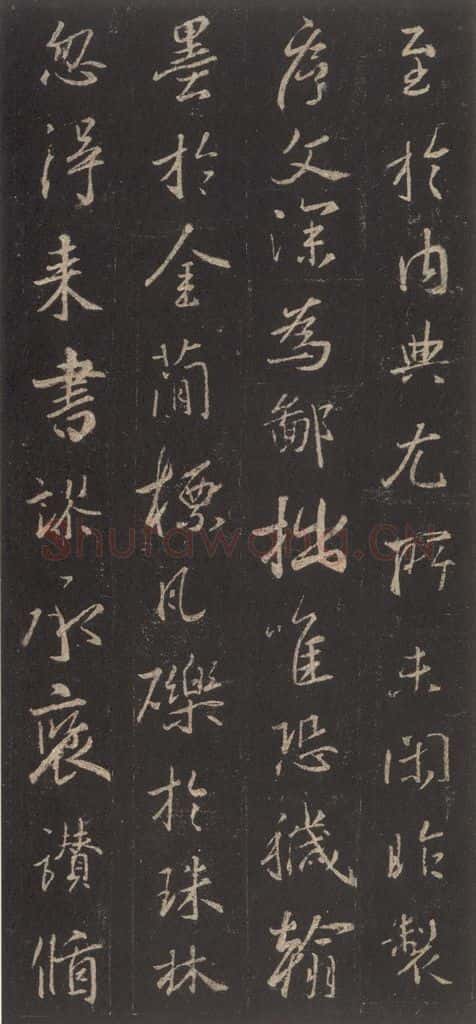 至於內典尤所未閑昨製
序文深為鄙拙唯恐穢翰
墨於金簡標瓦礫於珠林
忽得来書謬承褒讚循
Shufawang.CN